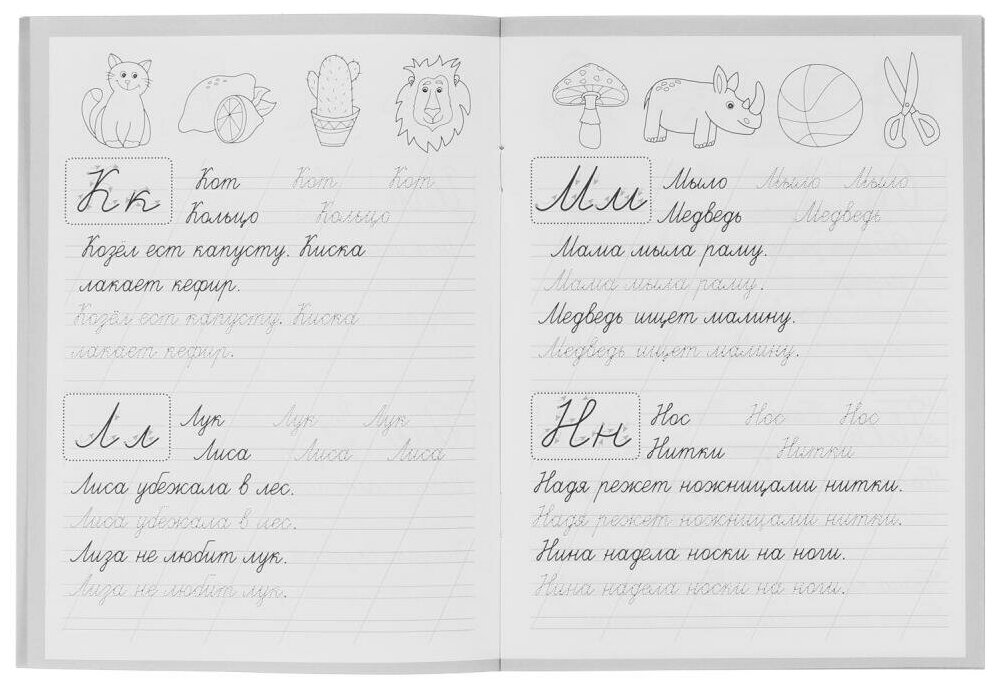 Кк
Кот Кот Кот
Кольцо Кольцо
Козёл ест капусту. Киска
лакает кефир.
Козёл ест капусту. Киска
лакает кефир.
Лл
Лук Лук Лук
Лиса Лиса Лиса
Лиса убежала в лес.
Лиса убежала в лес.
Лиза не любит лук.
Лиза не любит лук.
Мм
Мыло Мыло Мыло
Медведь Медведь
Мама мыла раму.
Мама мыла раму.
Медведь ищет малину.
Медведь ищет малину.
Нн
Нос Нос Нос
Нитки Нитки
Надя режет ножницами нитки.
Надя режет ножницами нитки.
Нина надела носки на ноги.
Нина надела носки на ноги.